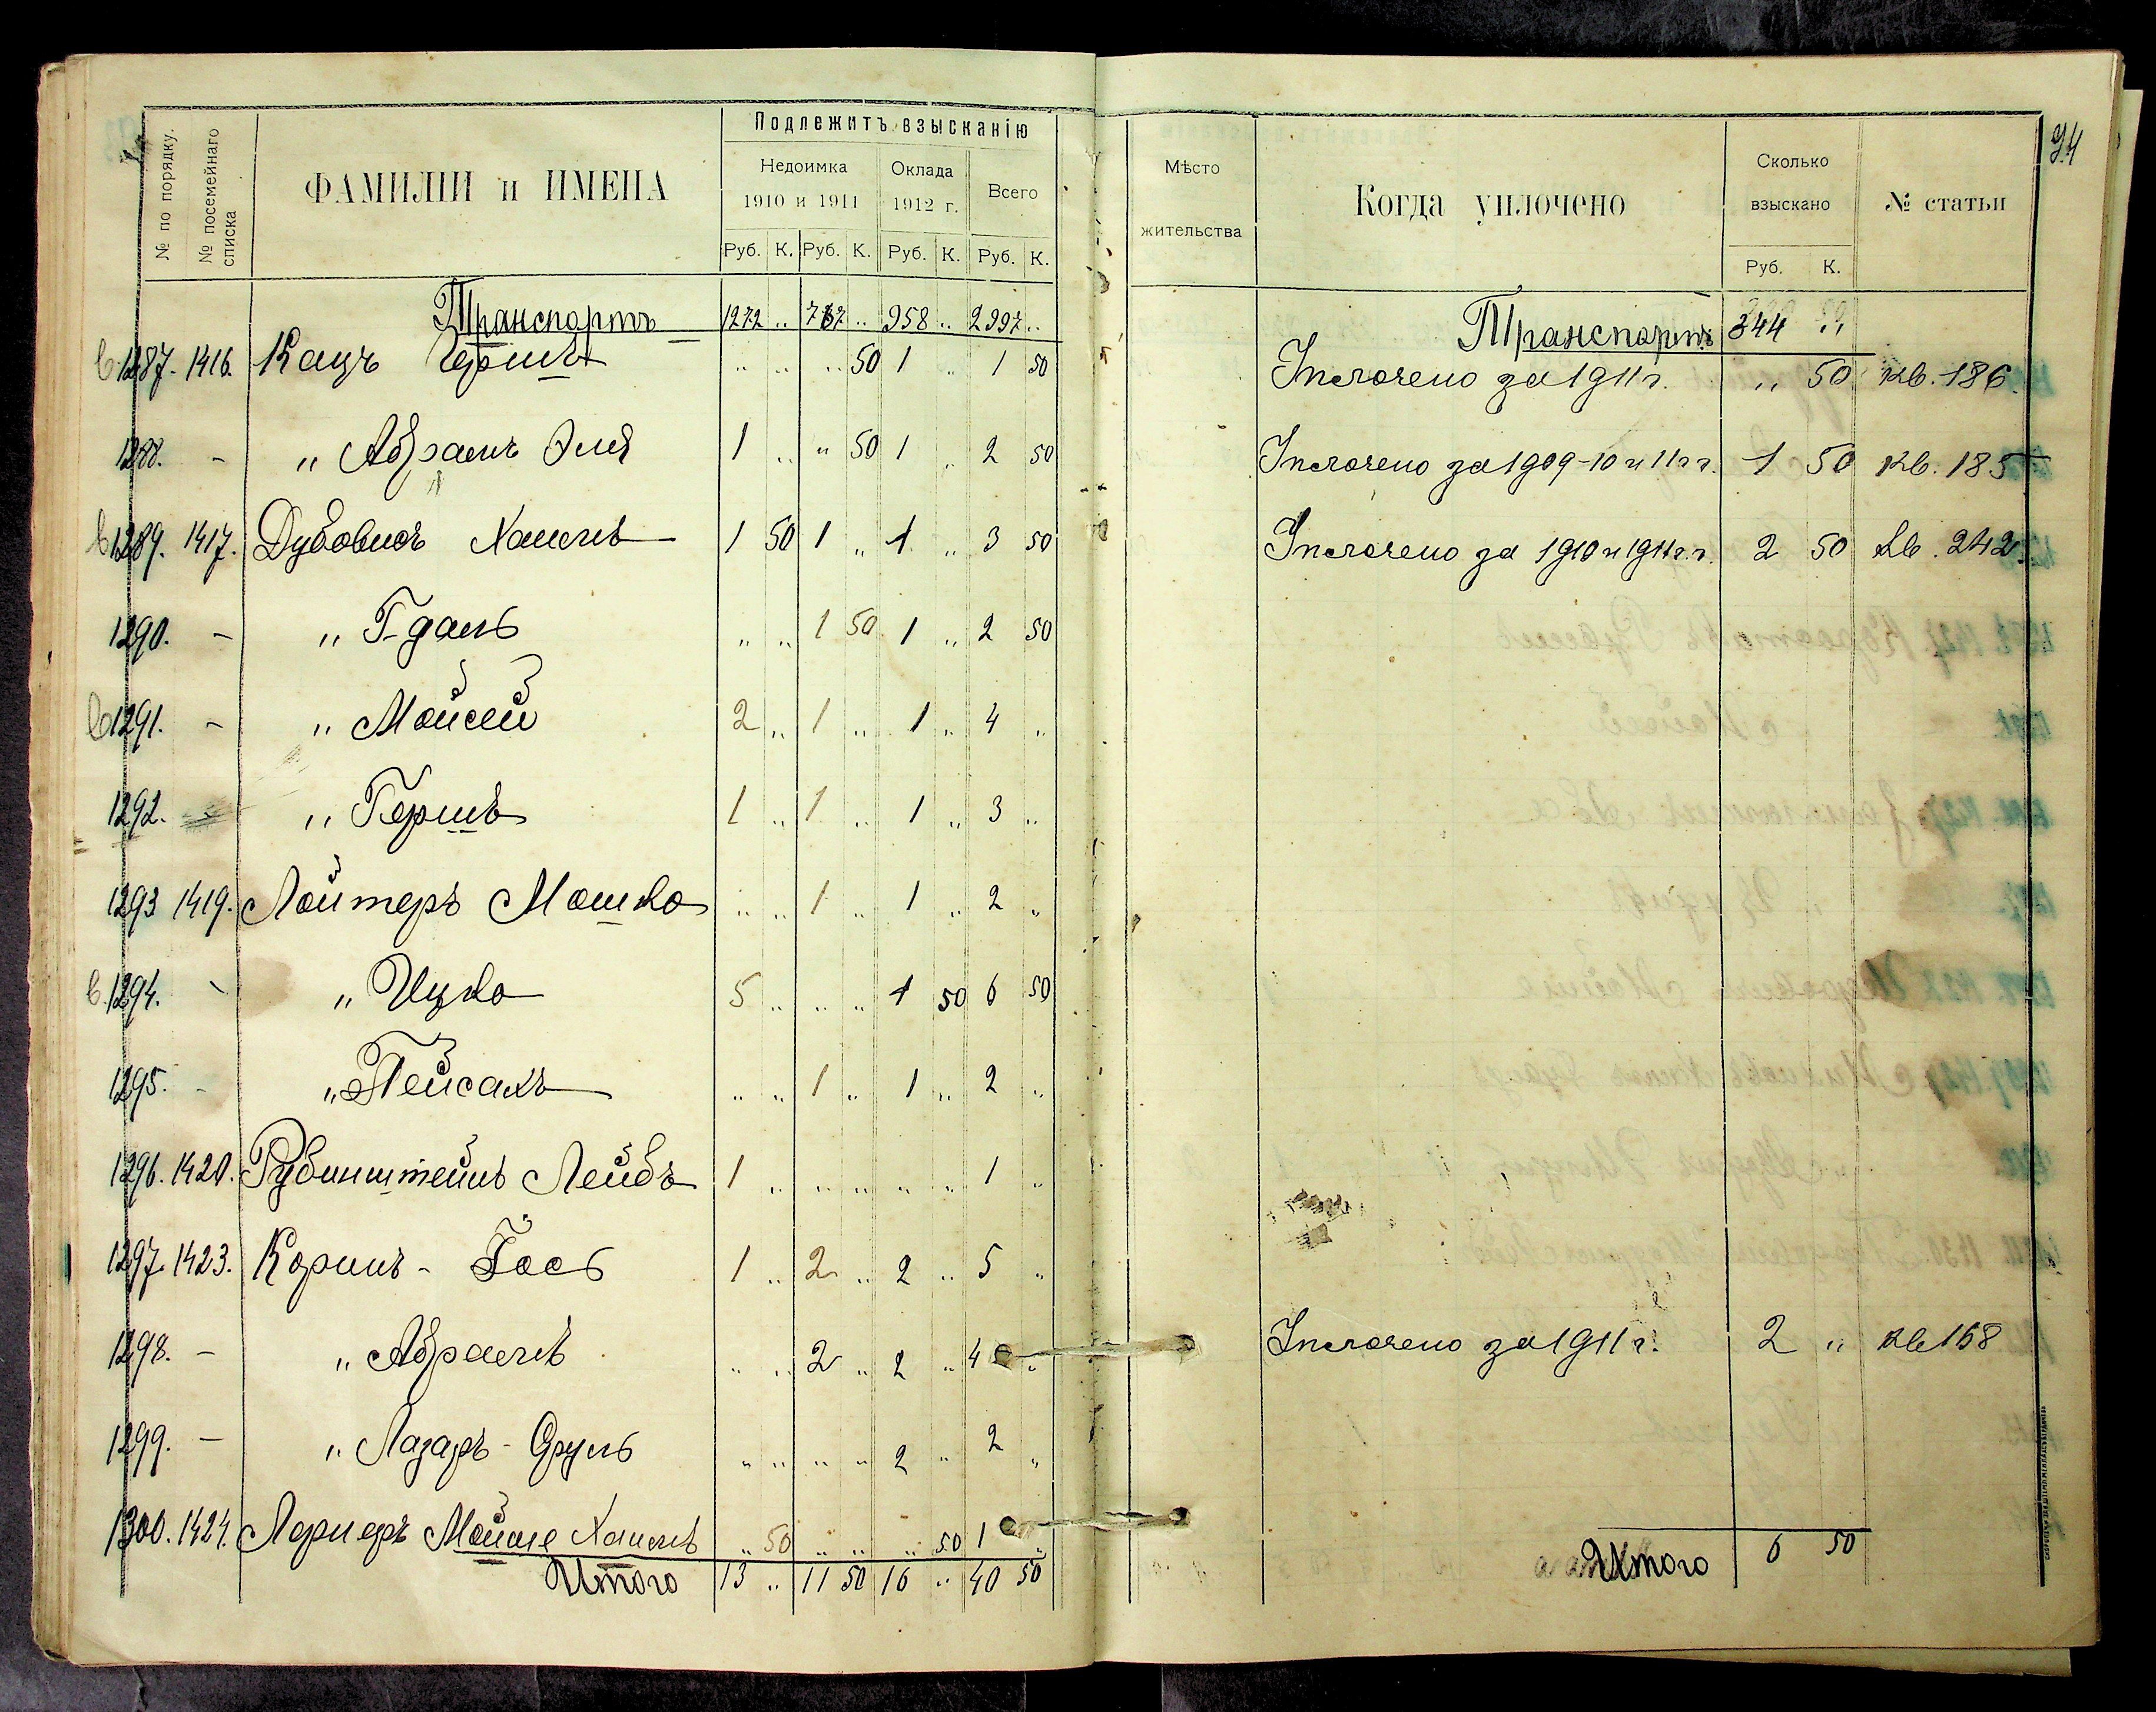 № по порядку.
№ посемейнаго списка
ФАМИЛІИ и ИМЕНА
Подлежитъ взысканію
Недоимка 1910 и 1911
Оклада 1912 г.
Всего
Руб. К. Руб. К. Руб. К. Руб. К.
Транспортъ 1272 " 767 " 958 " 2997 "
1287. 1416. Кацъ Гершъ " " " 50 1 " 1 50
1288. - " Абрамъ Эля 1 " " 50 1 " 2 50
1289. 1417. Дубовисъ Хаимъ 1 50 1 " 1 " 3 50
1290. - " Гдаль " " 1 50 1 " 2 50
1291. - " Мойсей 2 " 1 " 1 " 4 "
1292. - " Гершъ 1 " 1 " 1 " 3 "
1293 1419. Лойтеръ Мошко " " 1 " 1 " 2 "
1294. - " Ицко 5 " " " 1 50 6 50
1295. - " Пейсахъ " " 1 " 1 " 2 "
1296. 1420. Рубинштейнъ Лейбъ 1 " " " " " 1 "
1297. 1423. Коринъ - Іось 1 " 2 " 2 " 5 "
1298. - " Абрамъ " " 2 " 2 " 4 "
1299. - " Лазаръ - Сруль " " " " 2 " 2 "
1300. 1424. Лернеръ Мойше Хаимъ " 50 " " " 50 1 "
Итого 13 " 11 50 16 " 40 50
94
Мѣсто жительства
Когда уплочено
Сколько взыскано
№ статьи
Руб. К.
Транспортъ 344 "
Уплочено за 1911 г. " 50 кв. 186.
Уплочено за 1909-10 и 11 г г. 1 50 кв. 185
Уплочено за 1910 и 1911 г. г. 2 50 кв. 242.
Уплочено за 1911 г. 2 " кв 158
Итого 6 50